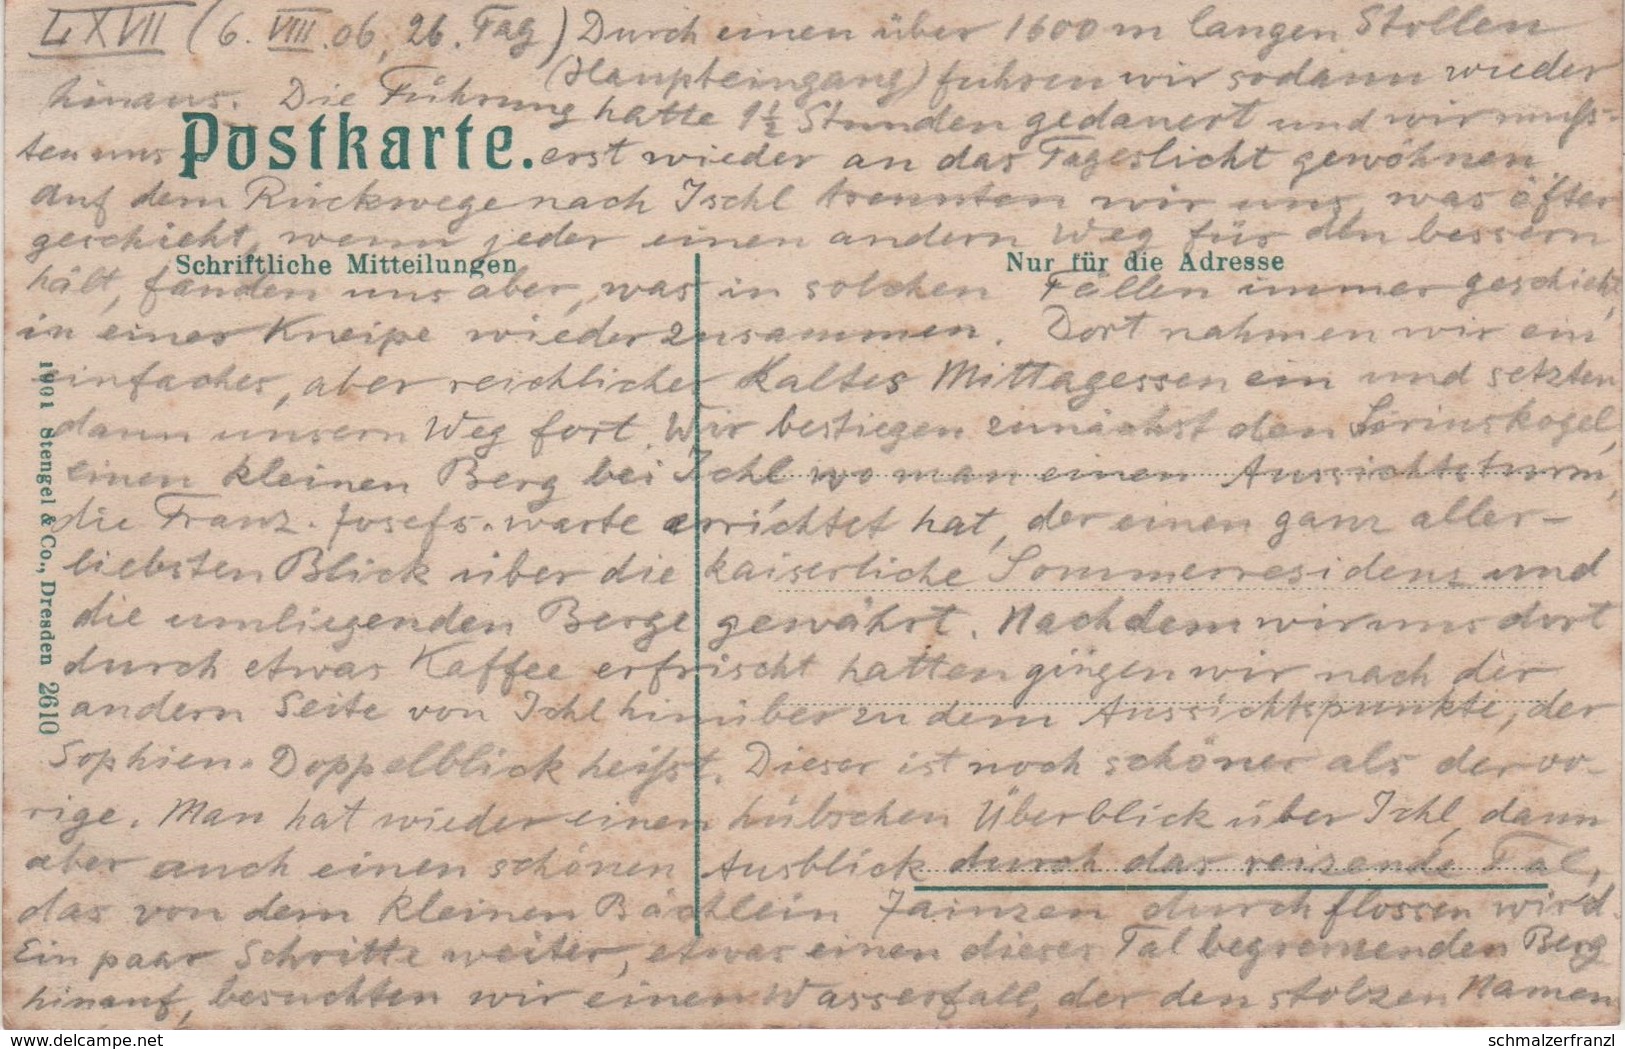 LXVII (6. VIII. 06, 26. Tag) Durch einen über 1600 m langen Stollen
(Haupteingang) fuhren wir sodann wieder
hinaus. Die Führung hatte 1½ Stunden gedauert und wir muß-
ten uns Postkarte. erst wieder an das Tageslicht gewöhnen
Auf dem Rückwege nach Ischl trennten wir uns, was öfter
geschieht, wenn jeder einen andern Weg für den bessern
Schriftliche Mitteilungen Nur für die Adresse
hält, fanden uns aber, was in solchen Fällen immer geschieht,
in einer Kneipe wieder zusammen. Dort nahmen wir ein
einfaches, aber reichliches kaltes Mittagessen ein und setzten
dann unsern Weg fort. Wir bestiegen zunächst den Siriuskogel,
einen kleinen Berg bei Ischl, wo man einen Aussichtsturm,
die Franz-Josefs-warte errichtet hat, der einen ganz aller-
liebsten Blick über die kaiserliche Sommerresidenz und
die umliegenden Berge gewährt. Nachdem wir uns dort
durch etwas Kaffee erfrischt hatten gingen wir nach der
andern Seite von Ischl hinüber zu dem Aussichtspunkte, der
Sophien-Doppelblick heißt. Dieser ist noch schöner als der vo-
rige. Man hat wieder einen hübschen Überblick über Ischl, dann
aber auch einen schönen Ausblick durch das reizende Tal,
das von dem kleinen Bächlein Jainzen durchflossen wird.
Ein paar Schritte weiter, etwas einen dieses Tal begrenzenden Berg
hinauf, besuchten wir einen Wasserfall, der den stolzen Namen
1901 Stengel & Co., Dresden 2610
delcampe.net
schmalzerfranzl